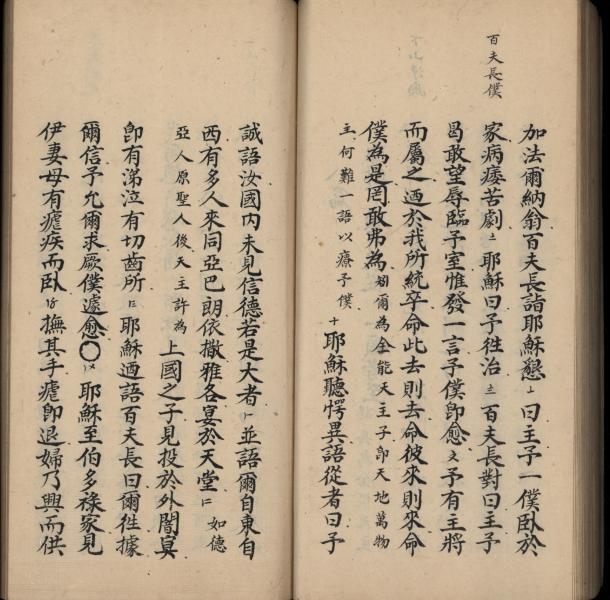 百夫長僕
加法爾納翁百夫長詣耶穌懇上曰主子一僕卧於
家病痿苦劇二耶穌曰予徃治三百夫長對曰主予
曷敢望辱臨予室惟發一言予僕卽愈又予有主將
而屬之迺於我所統卒命此去則去命彼來則來命
僕為是罔敢弗為矧爾為全能天主子卽天地萬物
主何難一語以療予僕十耶穌聽愕異語從者曰予
誠語汝國内未見信德若是大者並語爾自東自
西有多人來同亞巴朗依撒雅各宴於天堂如德
亞人原聖人後天主許為上國之子見投於外闇冥
卽有涕泣有切齒所耶穌迺語百夫長曰爾徃據
爾信予允爾求厥僕遽愈〇耶穌至伯多祿家見
伊妻母有瘧疾而卧撫其手瘧卽退婦乃興而供